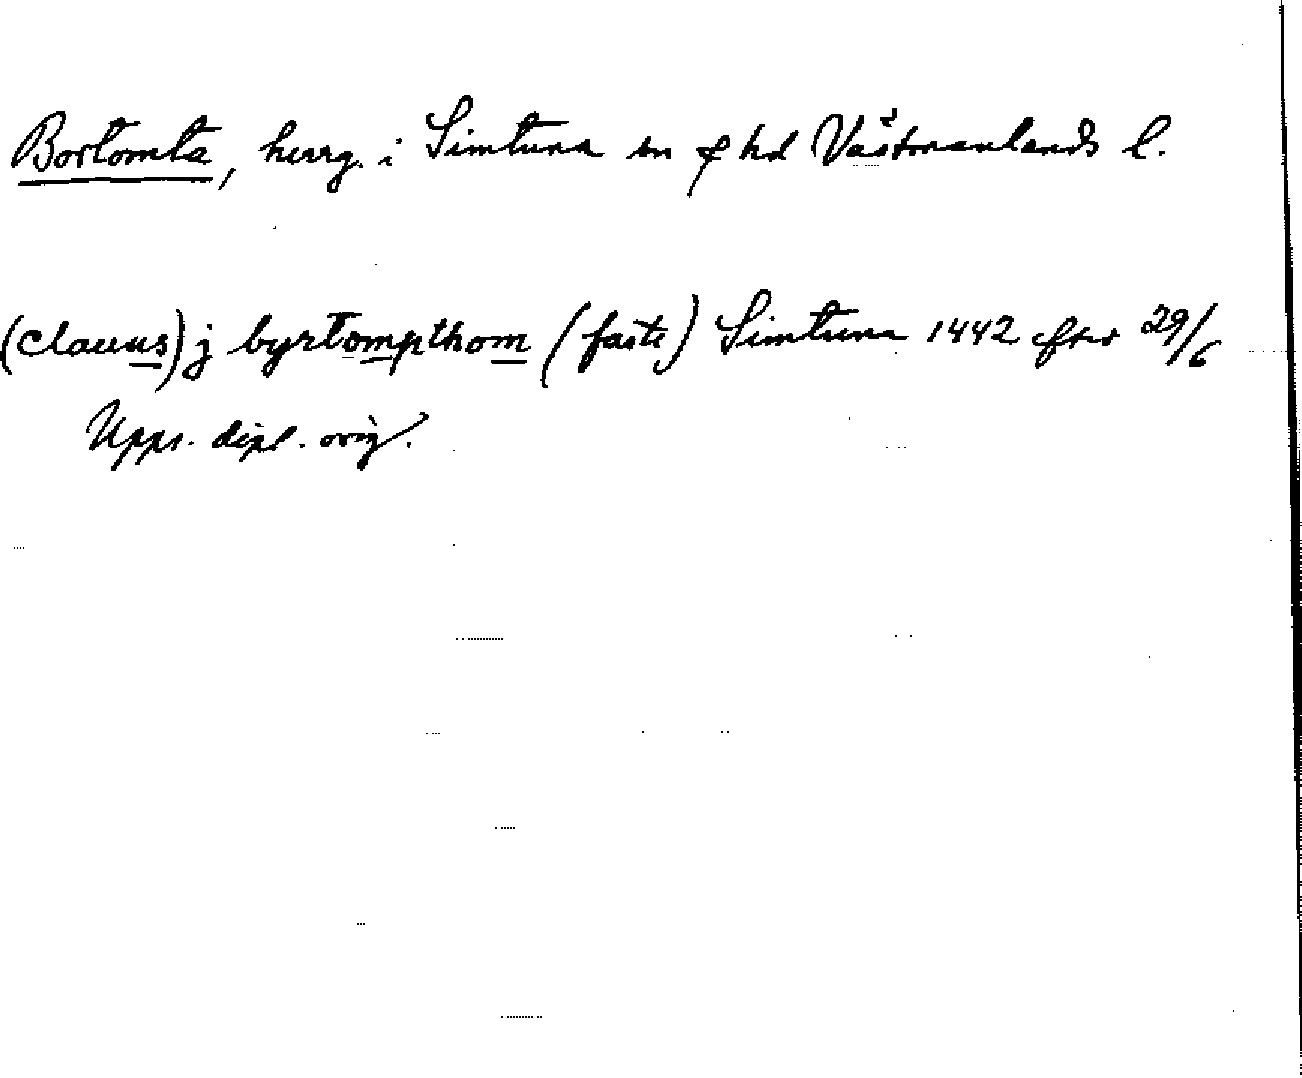 Bortomta, herrg. i Simtuna sn o hd Västmanlands l.
(clauus) j byrtompthom (faste) Simtuna 1442 efter 29/6
Upps. dipl. orig.